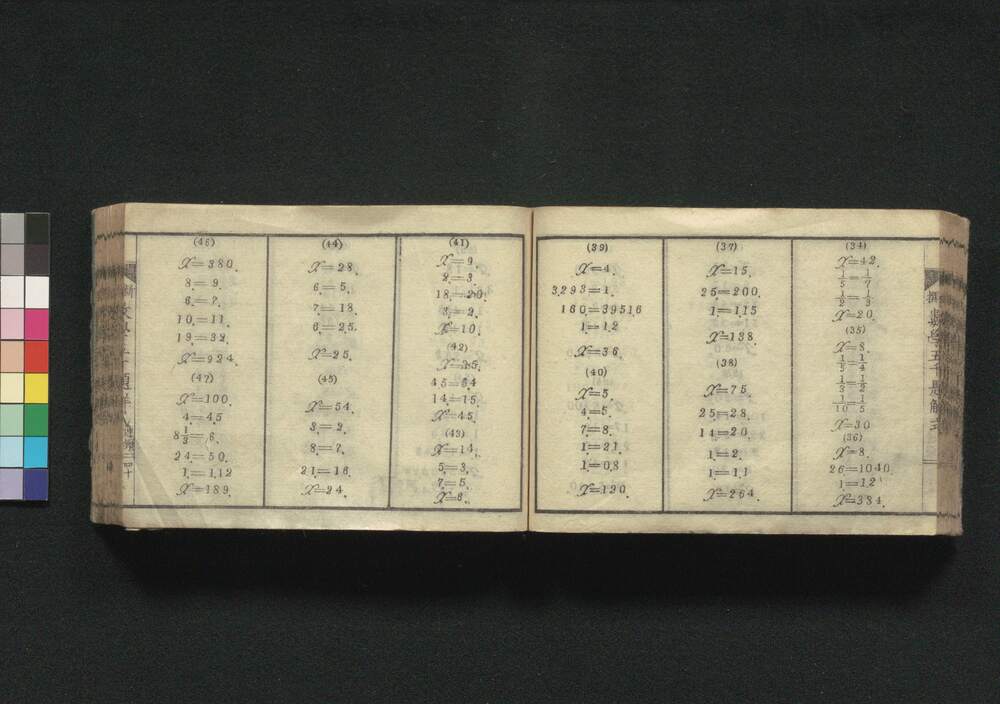 撰數學五千題解式
(34)
X=42.
1/5=1/7
1/2=1/3
X=20.
(35)
X=8.
1/5=1/4
1/3=1/2
1/10=1/5
X=30
(36)
X=8.
26=1040.
1=12
X=384.
(37)
X=15.
26=200.
1=1.15
X=138.
(38)
X=75.
25=28.
14=20.
1=2.
1=1.1
X=264.
(39)
X=4.
3.293=1.
160=39516
1=1.2
X=36.
(40)
X=5.
4=5.
7=8.
1=21.
1=0.8
X=130.
(41)
X=9.
2=3.
18=20.
3=2.
X=10.
(42)
X=35.
45=64
14=15
X=45.
(43)
X=14.
5=3.
7=5.
X=6.
(44)
X=28.
6=5.
7=18.
6=25.
X=25.
(45)
X=54.
3=2.
8=7.
21=16.
X=24.
(46)
X=380.
8=9.
6=7.
10=11.
19=32.
X=924.
(47)
X=100.
4=4.5
8 1/3=6.
24=50.
1=1.12
X=189.